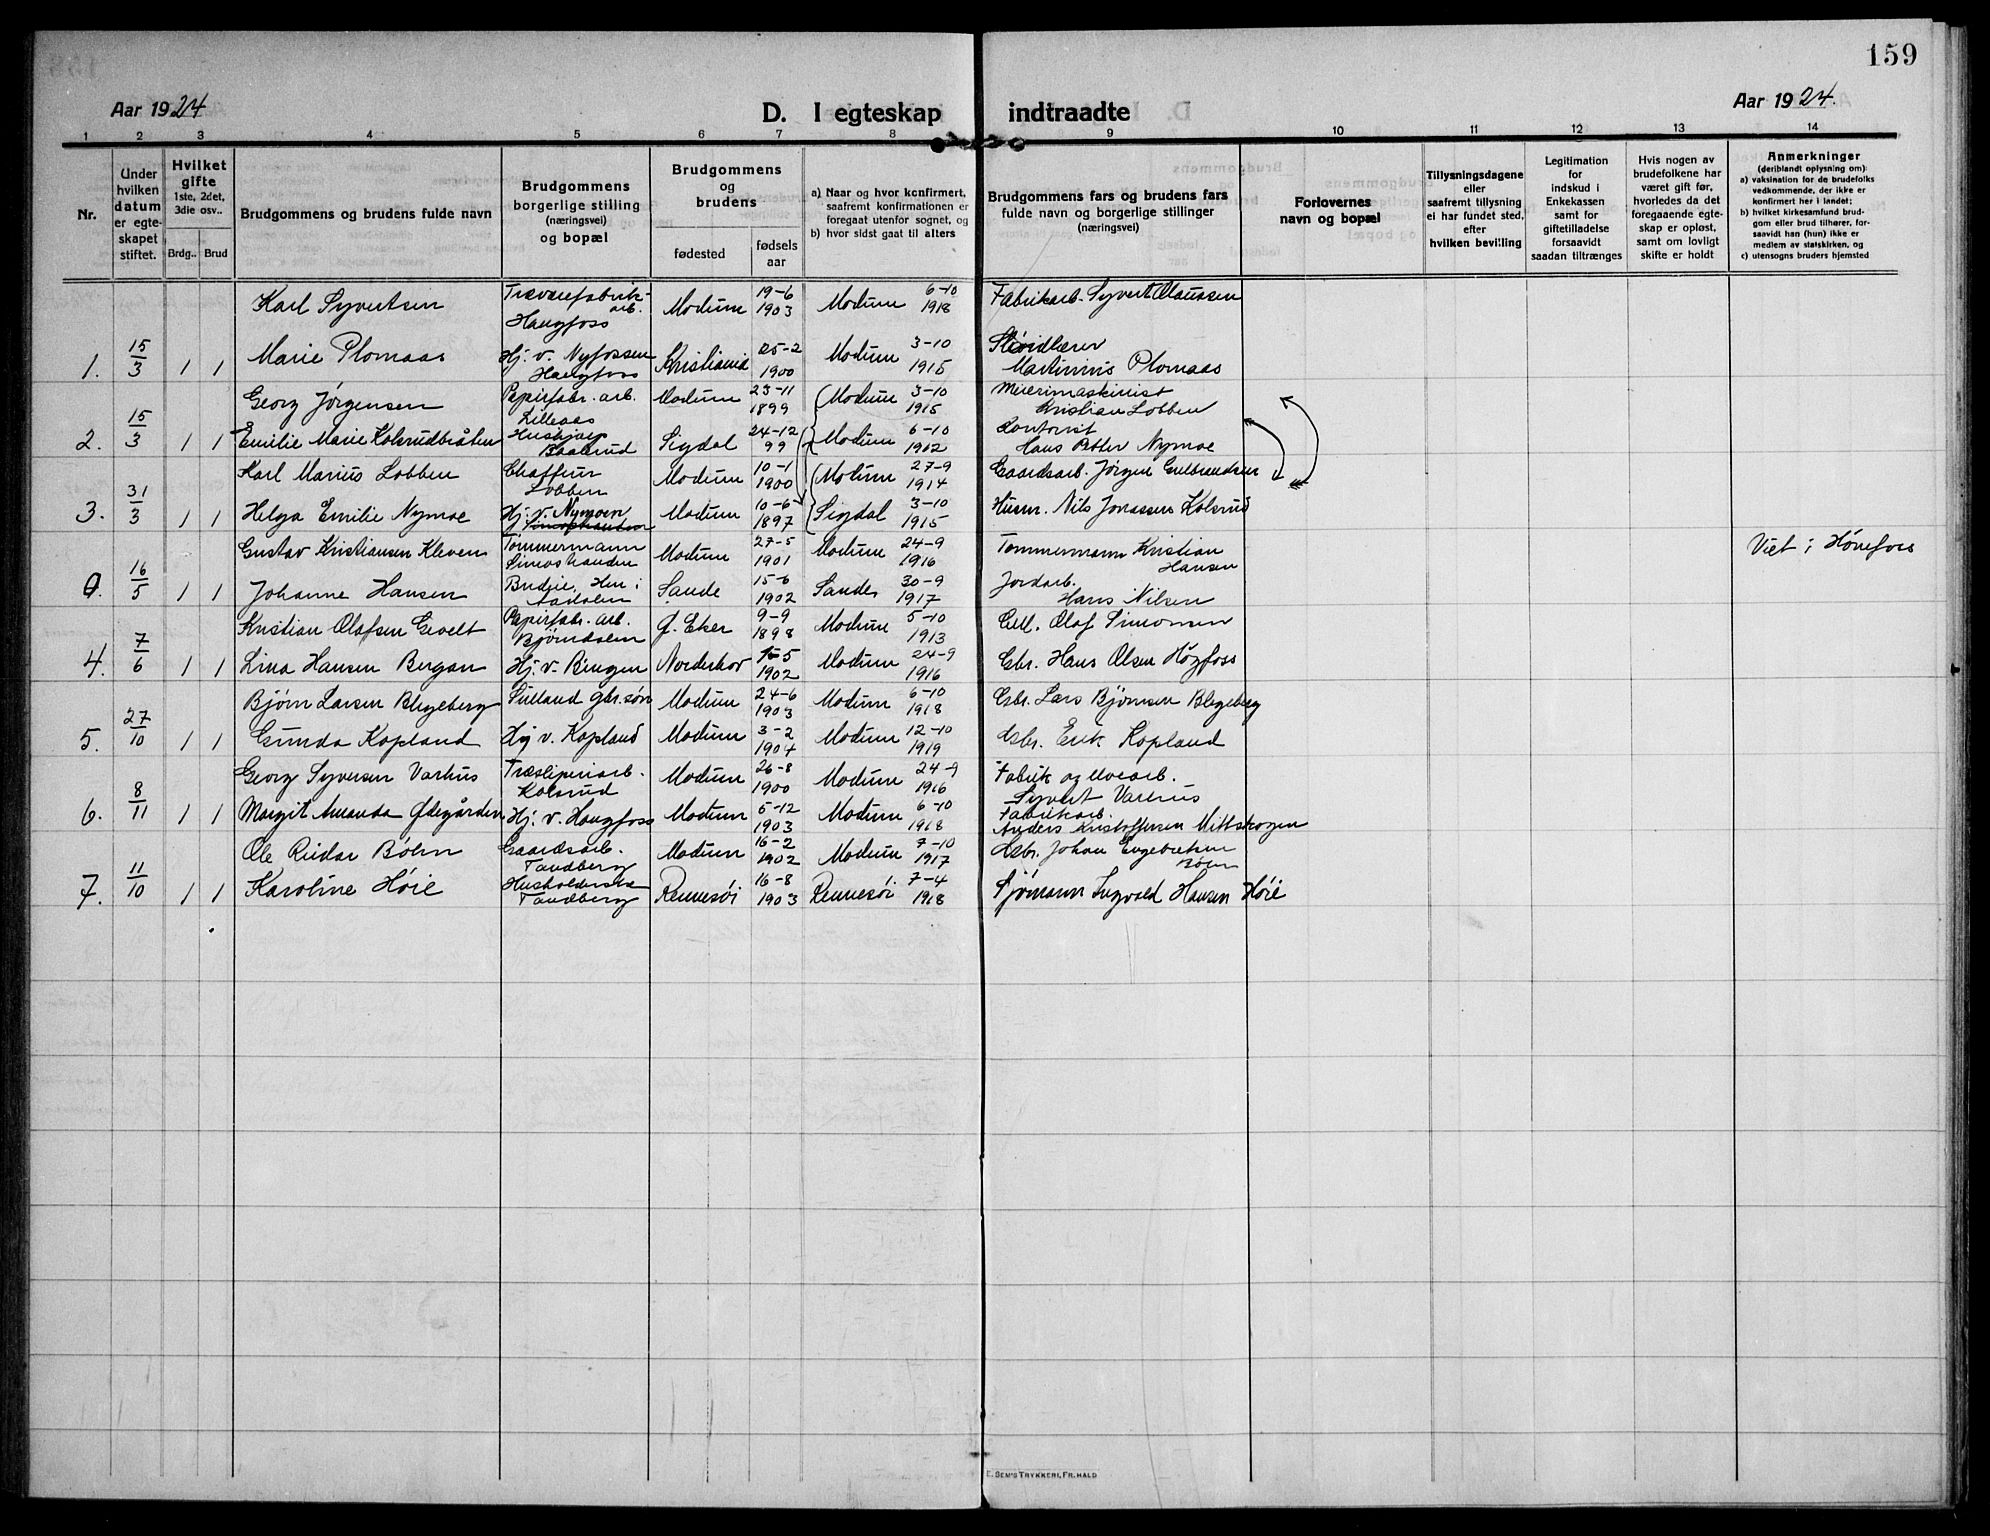 159
Aar 1924
D. I egteskap indtraadte
Aar 1924.
1 2 3 4 5 6 7 8 9 10 11 12 13 14
Nr.
Under hvilken datum er egteskapet stiftet.
Hvilket gifte 1ste, 2det, 3die osv..
Brdg.. Brud
Brudgommens og brudens fulde navn
Brudgommens borgerlige stilling (næringsvei) og bopæl
Brudgommens og brudens
fødested
fødselsaar
a) Naar og hvor konfirmert, saafremt konfirmationen er foregaat utenfor sognet, og
b) hvor sidst gaat til alters
Brudgommens fars og brudens fars fulde navn og borgerlige stillinger (næringsvei)
Forlovernes navn og bopæl
Tillysningsdagene eller saafremt tillysning ei har fundet sted, efter hvilken bevilling
Legitimation for indskud i Enkekassen samt for giftetilladelse forsaavidt saadan tiltrænges
Hvis nogen av brudefolkene har været gift før, hvorledes da det foregaaende egteskap er opløst, samt om lovligt skifte er holdt
Anmerkninger (deriblandt oplysning om):
a) vaksination for de brudefolks vedkommende, der ikke er konfirmert her i landet;
b) hvilket kirkesamfund brudgom eller brud tilhører, forsaavidt han (hun) ikke er medlem av statskirken, og
c) utensogns bruders hjemsted
Karl Syvertsen Trævarefabrikarb. Haugfoss Modum 19-6 1903 Modum 6-10 1918 Fabrikarb. Syvert Olaussen
1. 15/3 1 1 Marie Plomaas Hj. v. Nyfossen Haugfoss Kristiania 25-2 1900 Modum 3-10 1915 Martinius Plomaas
Georg Jørgensen Papirfabr. arb. Lilleaas Modum 23-11 1899 Modum 3-10 1915 Meierimaskinist Kristian Lobben
2. 15/3 1 1 Emilie Marie Kolsrudbråten Hushjælp Baalsrud Sigdal 24-12 99 Modum 6-10 1912 Kontorist Hans Petter Nymoe
Karl Marius Lobben Chaffeur Lobben Modum 10-1 1900 Modum 27-9 1914 Gaardsarb. Jørgen Gulbrandsen
3. 31/3 1 1 Helga Emilie Nymoe Hj. v. Nymoen Modum 10-6 1897 Sigdal 3-10 1915 Husm. Nils Jonassen Kolsrud
Gustav Kristiansen Kleven Tømmermann Simostranden Modum 27-5 1901 Modum 24-9 1916 Tømmermann Kristian Hansen Viet i Hønefoss
0. 16/5 1 1 Johanne Hansen Budeie, Hen i Aadalen Sande 15-6 1902 Sande 30-9 1917 Jordarb. Hans Nilsen
Kristian Olafsen Gevelt Papirfabr. arb. Bjørndalen Ø. Eker 9-9 1898 Modum 5-10 1913 Olaf Simonsen
4. 7/6 1 1 Lina Hansen Bergan Hj. v. Bingen Norderhov 15-5 1902 Modum 24-9 1916 Gbr. Hans Olsen Høgfoss
Bjørn Larsen Blegeberg Sulland gbr. søn Modum 24-6 1903 Modum 6-10 1918 Gbr. Lars Bjørnsen Blegeberg
5. 27/10 1 1 Gunda Kopland Hj v. Kopland Modum 3-2 1904 Modum 12-10 1919 Gbr. Erik Kopland
Georg Syversen Varhus Træsliperiarb. Kolsrud Modum 26-8 1900 Modum 24-9 1916 Fabrik og elvearb. Syvert Varhus
6. 8/11 1 1 Margit Amanda Ødegården Hj. v. Haugfoss Modum 5-12 1903 Modum 6-10 1918 Fabrikarb. Anders Kristoffersen Mittskogen
Ole Reidar Bøhn Gaardsarb. Tandberg Modum 16-2 1902 Modum 7-10 1917 Gbr. Johan Engebretsen Bøhn
7. 11/10 1 1 Karoline Høie Husholderske Tandberg Rennesøi 16-8 1903 Rennesøi 7-4 1918 Sjømann Ingvald Hansen Høie
E. SEM'S TRYKKERI, FR.HALD